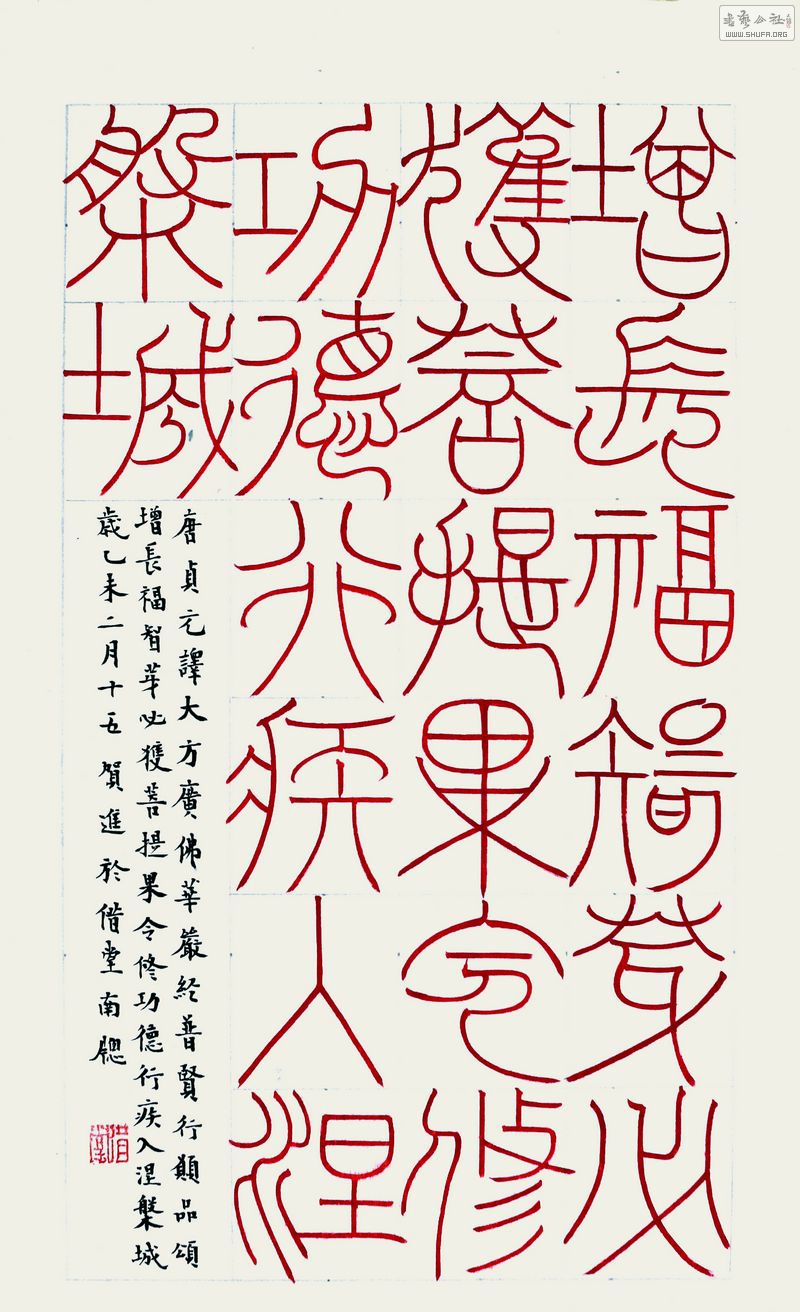 增長福智芽必
獲菩提果令修
功德行疾入涅
槃城
唐貞元譯大方廣佛華嚴經普賢行願品頌
增長福智芽必獲菩提果令修功德行疾入涅槃城
歲乙未二月十五賀進於借堂南牕
借堂
書藝公社
WWW.SHUFA.ORG